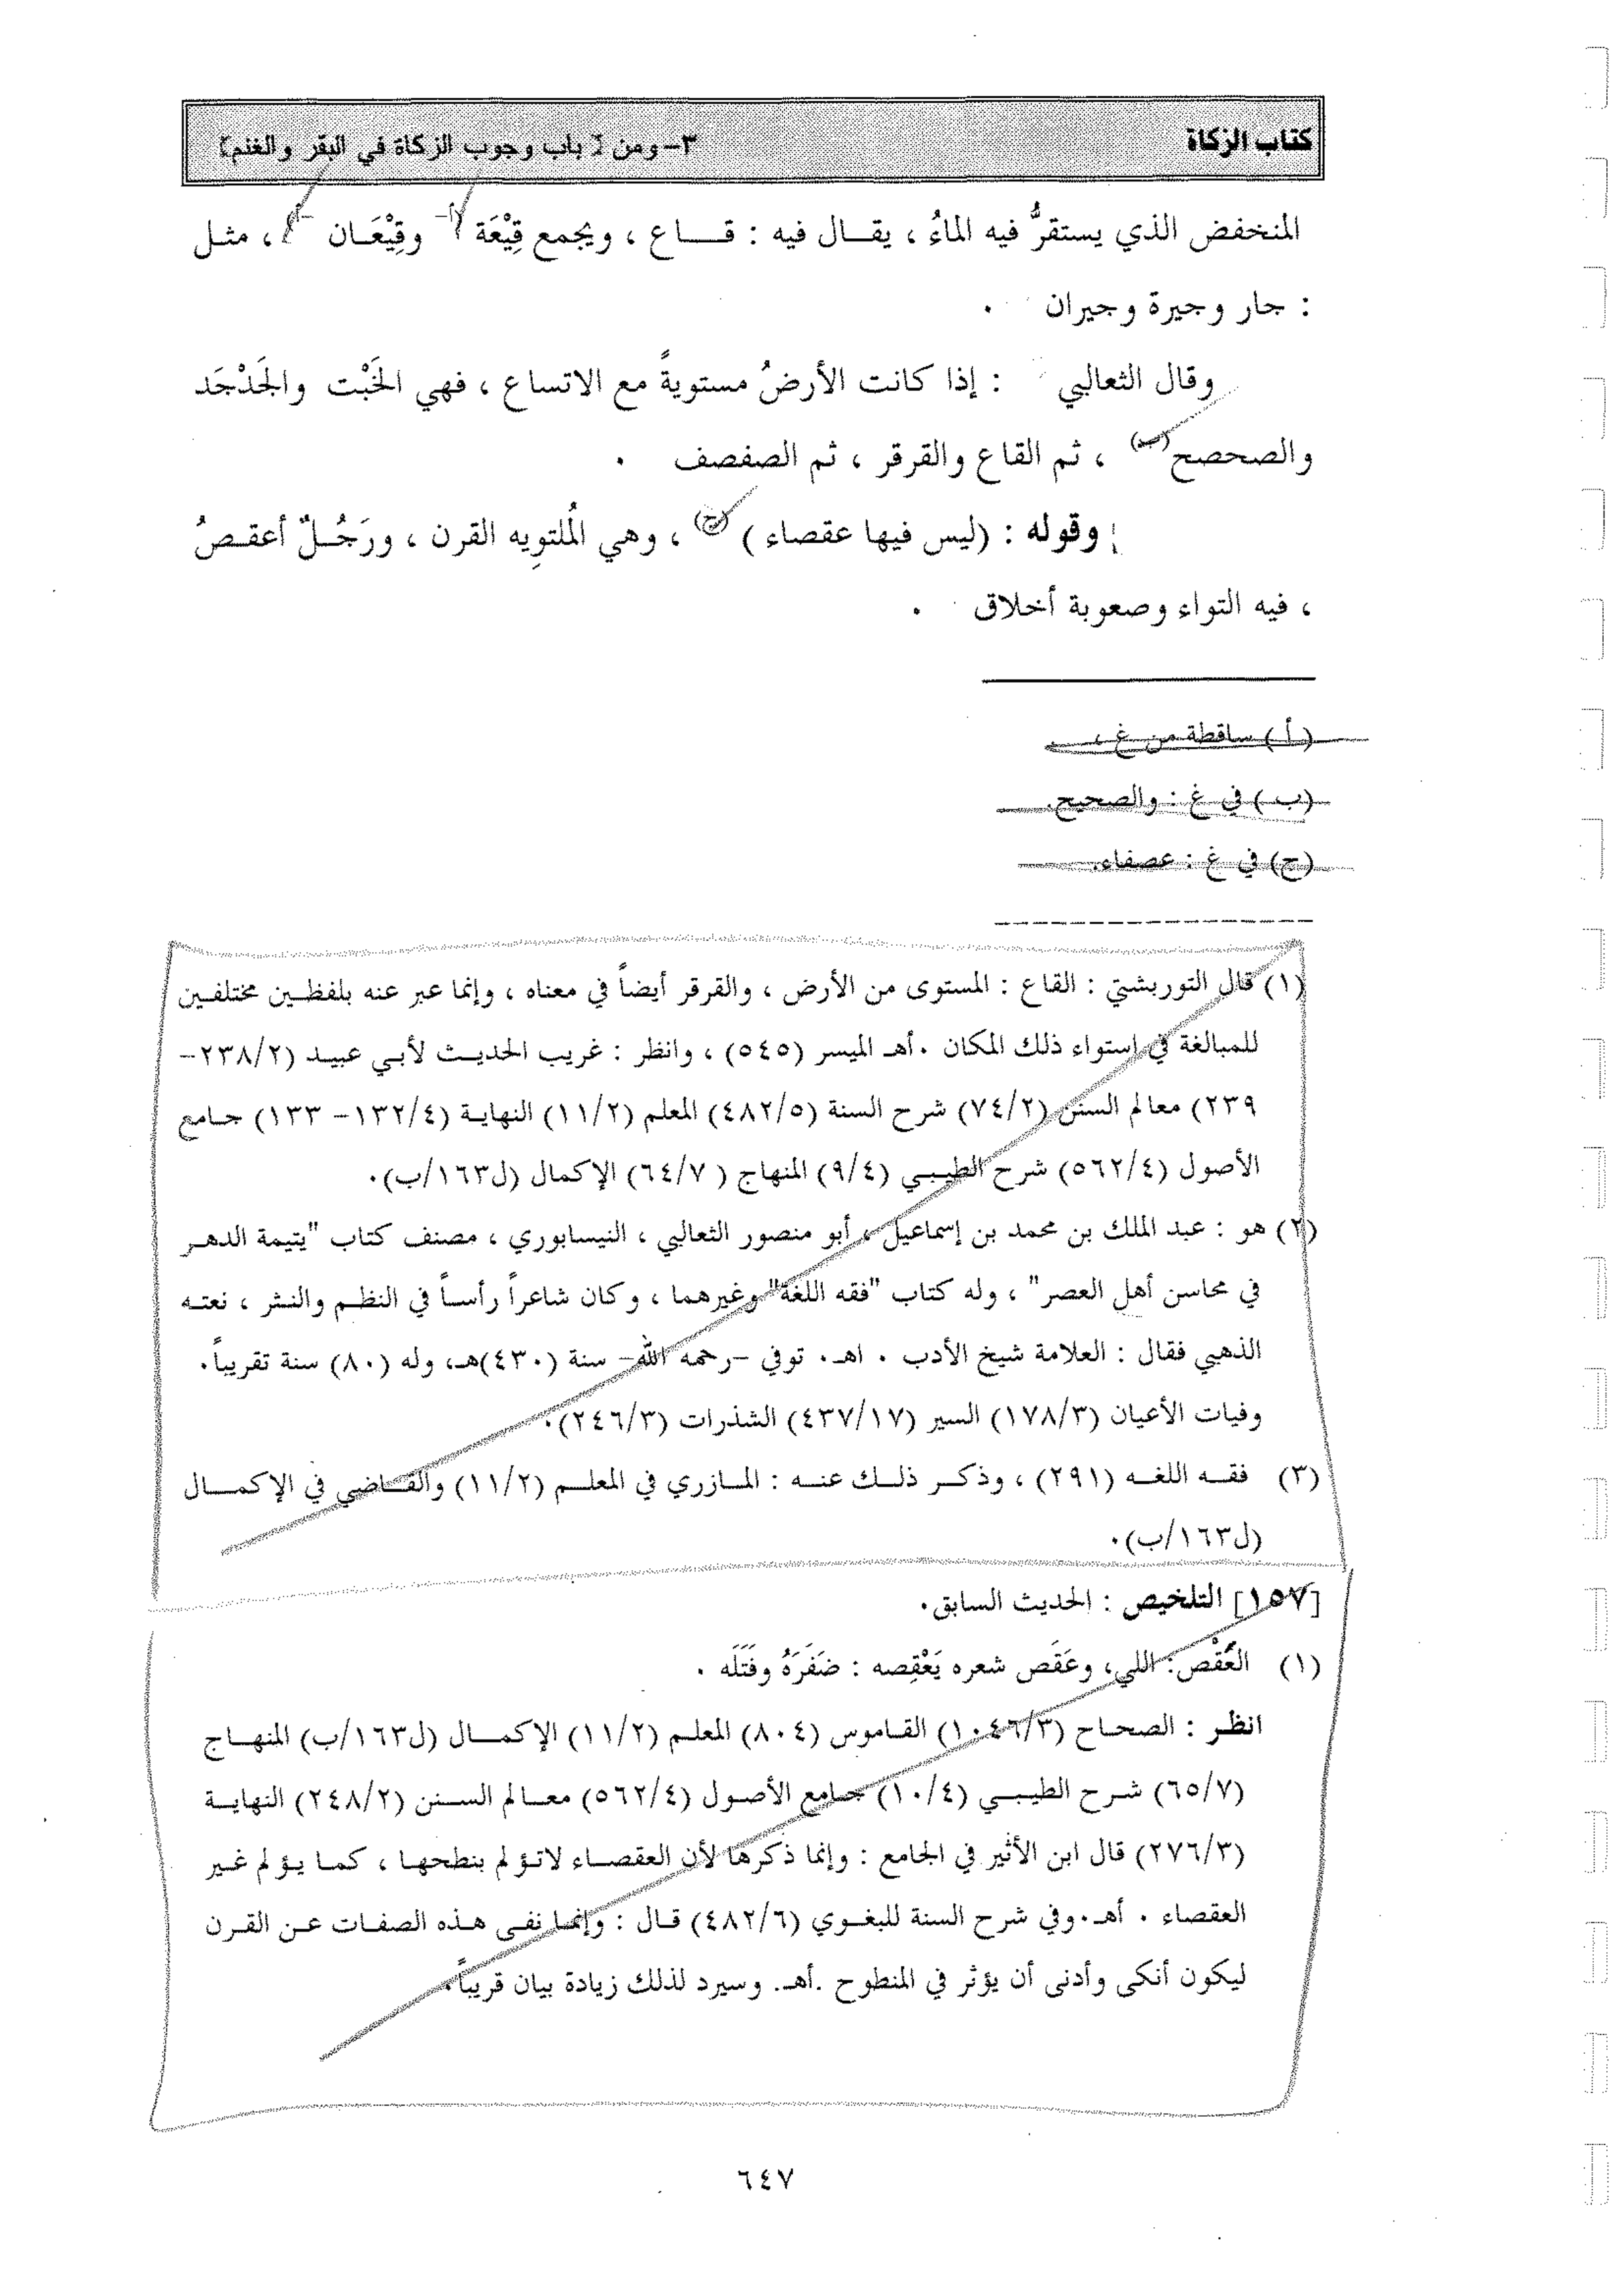 كتاب الزكاة ٣- ومن [ باب وجوب الزكاة في البقر والغنم]
المنخفض الذي يستقرُّ فيه الماءُ ، يقال فيه : قاع ، ويجمع قِيْعَة أ- وقِيْعَان -أ ، مثل
: جار وجيرة وجيران .
وقال الثعالبي : إذا كانت الأرضُ مستويةً مع الاتساع ، فهي الخَبْت والجَدْجَد
والصحصح (ب) ، ثم القاع والقرقر ، ثم الصفصف .
وقوله : (ليس فيها عقصاء ) (ج) ، وهي المُلتوِيه القرن ، ورَجُلٌ أعقصُ
، فيه التواء وصعوبة أخلاق .
(أ ) ساقطة من غ ،
(ب ) في غ : والصحيح.
(ج) في غ : عصفاء.
(١) قال التوربشتي : القاع : المستوى من الأرض ، والقرقر أيضاً في معناه ، وإنما عبر عنه بلفظين مختلفين
للمبالغة في إستواء ذلك المكان .أهـ الميسر (٥٤٥) ، وانظر : غريب الحديث لأبي عبيد (٢٣٨/٢-
٢٣٩) معالم السنن (٧٤/٢) شرح السنة (٤٨٢/٥) المعلم (١١/٢) النهاية (١٣٢/٤- ١٣٣) جامع
الأصول (٥٦٢/٤) شرح الطيبي (٩/٤) المنهاج ( ٦٤/٧) الإكمال (ل١٦٣/ب).
(٢) هو : عبد الملك بن محمد بن إسماعيل ، أبو منصور الثعالبي ، النيسابوري ، مصنف كتاب "يتيمة الدهر
في محاسن أهل العصر" ، وله كتاب "فقه اللغة" وغيرهما ، وكان شاعراً رأساً في النظم والنثر ، نعته
الذهبي فقال : العلامة شيخ الأدب . اهـ. توفي -رحمه الله- سنة (٤٣٠)هـ، وله (٨٠) سنة تقريباً.
وفيات الأعيان (١٧٨/٣) السير (٤٣٧/١٧) الشذرات (٢٤٦/٣).
(٣) فقه اللغه (٢٩١) ، وذكر ذلك عنه : المازري في المعلم (١١/٢) والقاضي في الإكمال
(ل١٦٣/ب).
[١٥٧] التلخيص : الحديث السابق.
(١) العَُقْص: اللي، وعَقَص شعره يَعْقِصه : ضَفَرَهُ وفَتَلَه .
انظر : الصحاح (١٠٤٦/٣) القاموس (٨٠٤) المعلم (١١/٢) الإكمال (ل١٦٣/ب) المنهاج
(٦٥/٧) شرح الطيبي (١٠/٤) جامع الأصول (٥٦٢/٤) معالم السنن (٢٤٨/٢) النهاية
(٢٧٦/٣) قال ابن الأثير في الجامع : وإنما ذكرها لأن العقصاء لاتؤلم بنطحها ، كما يؤلم غير
العقصاء . أهـ.وفي شرح السنة للبغوي (٤٨٢/٦) قال : وإنما نفى هذه الصفات عن القرن
ليكون أنكى وأدنى أن يؤثر في المنطوح .أهـ. وسيرد لذلك زيادة بيان قريباً.
٦٤٧